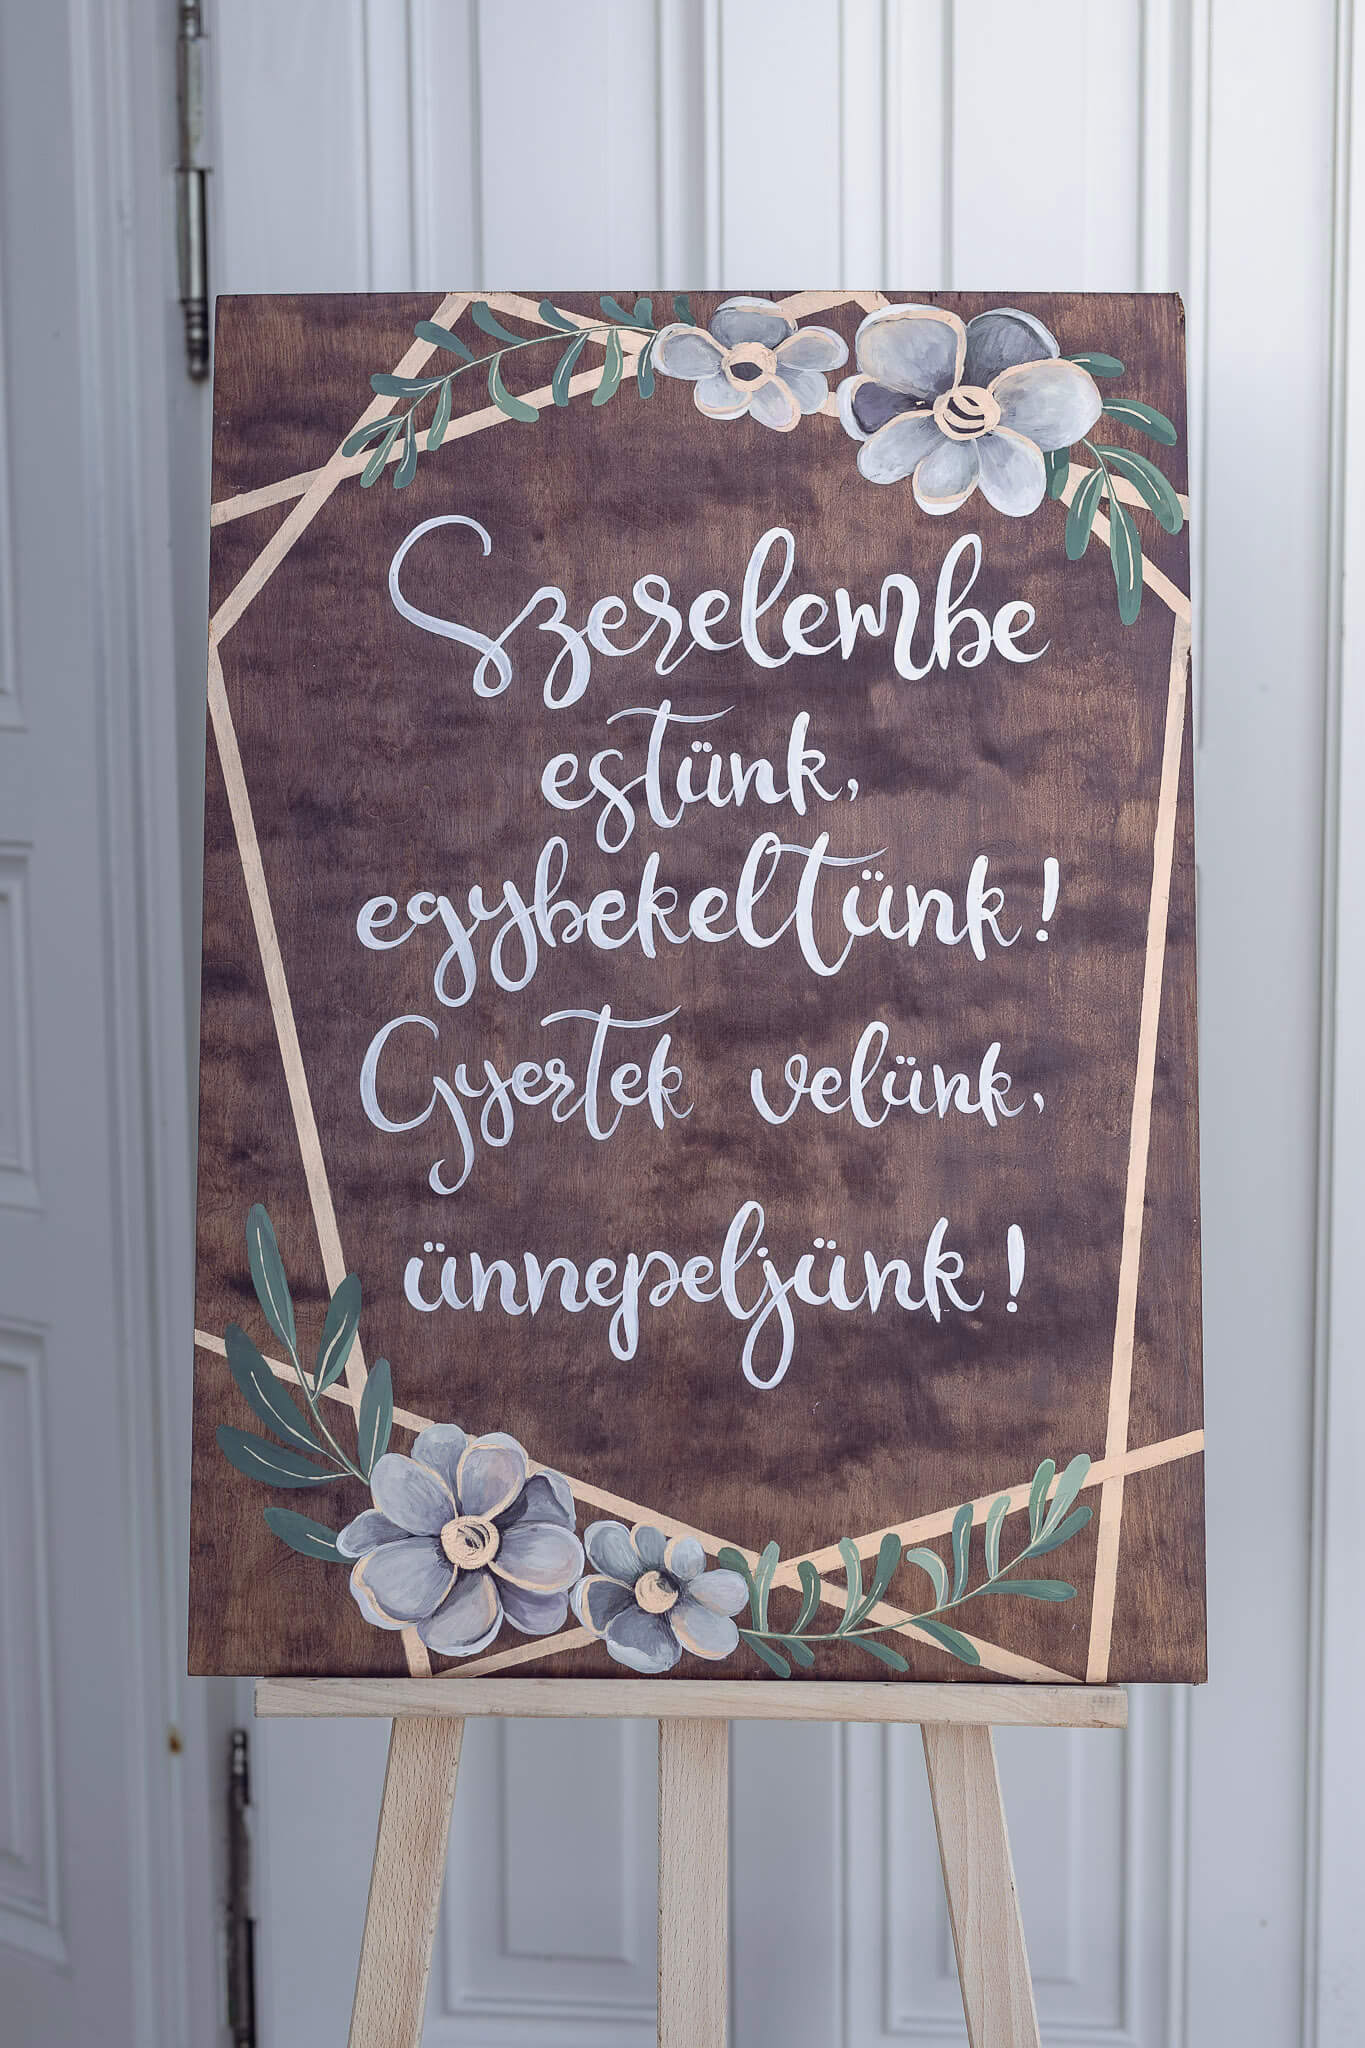 Szerelembe
estünk,
egybekeltünk!
Gyertek velünk,
ünnepeljünk!